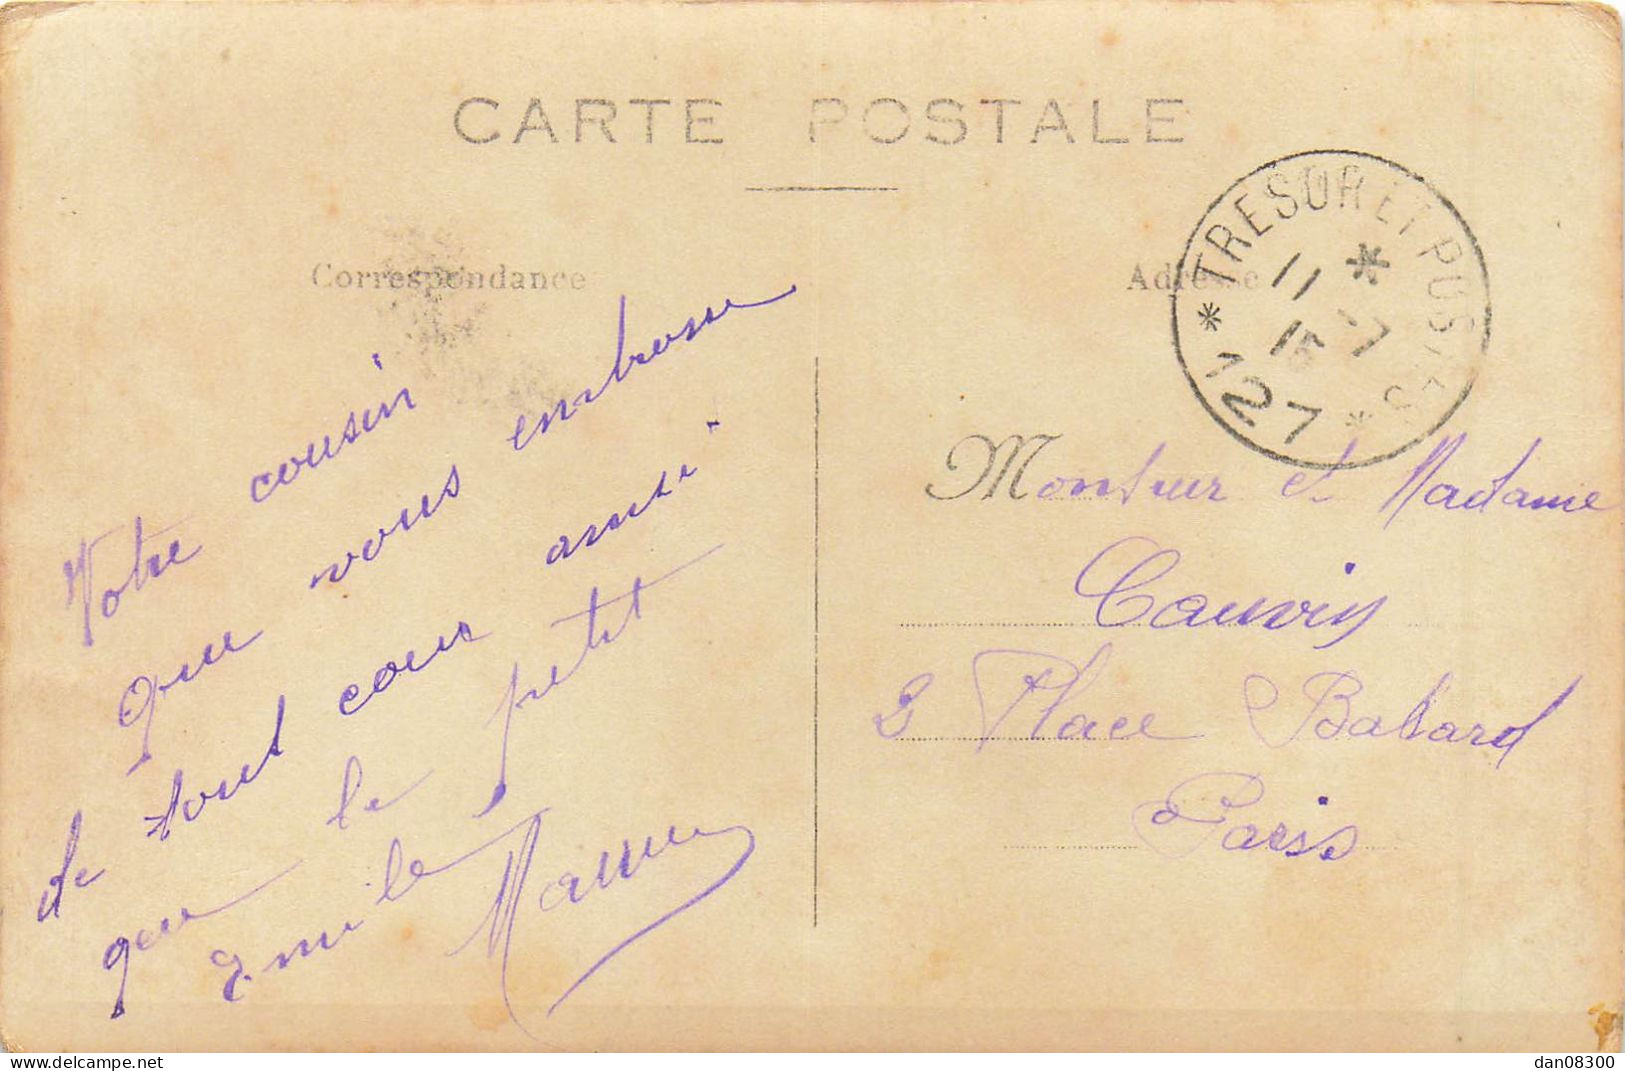 CARTE POSTALE
Correspondance
Adresse
* TRESOR ET POSTES *
11 *
15 7
127
Votre cousin
que vous embrasse
de tout cœur ainsi
que le petit
Emile
Monsieur et Madame
Cauvin
3 Place Balard
Paris
delcampe.net
dan08300